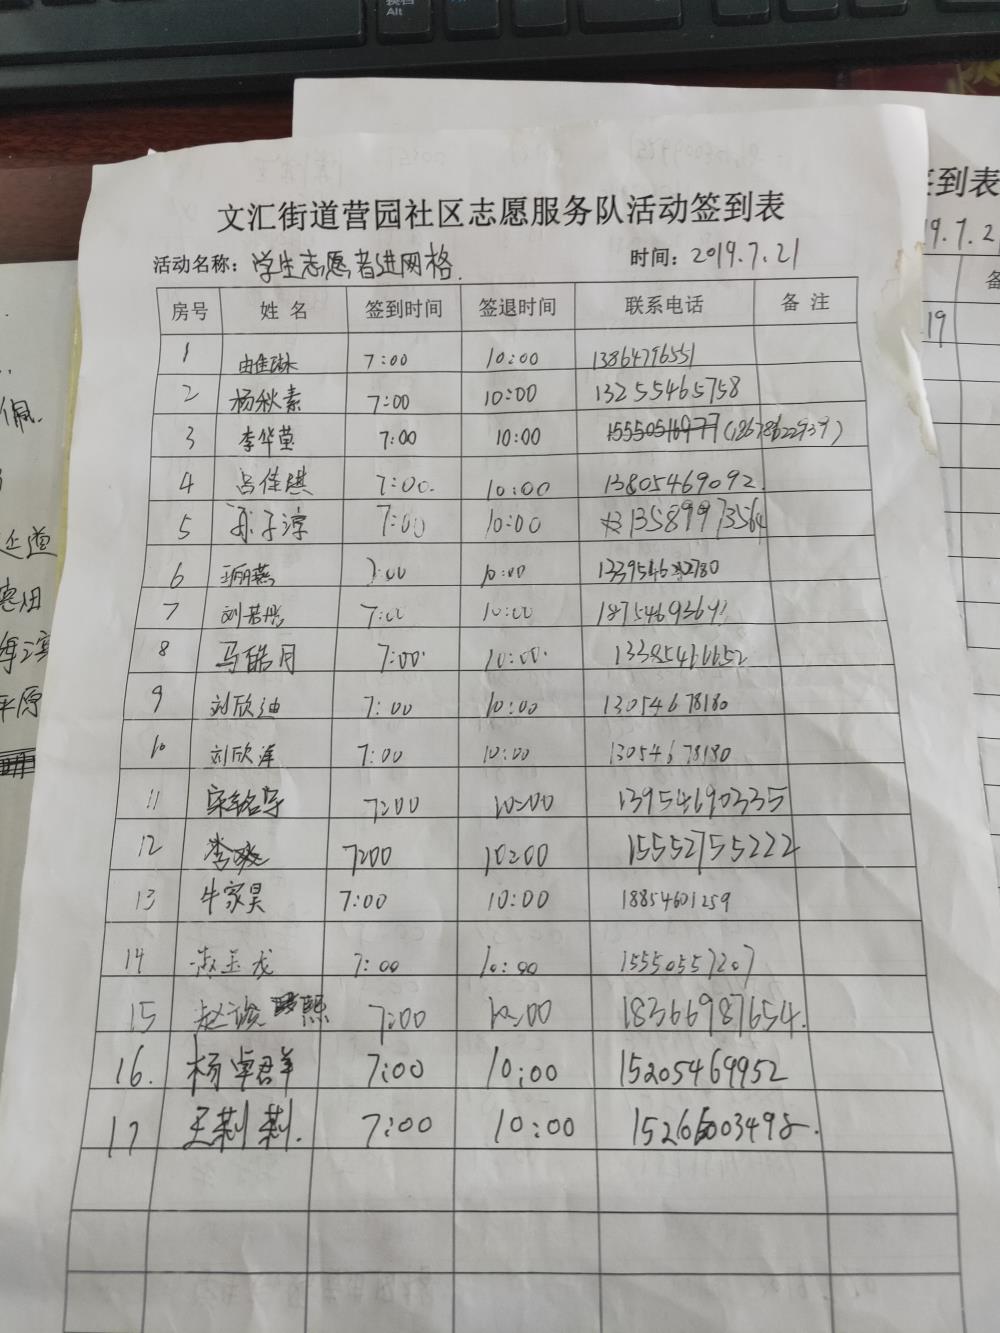 换档
Alt
文汇街道营园社区志愿服务队活动签到表
活动名称：学生志愿者进网格. 时间：2019.7.21
房号 姓 名 签到时间 签退时间 联系电话 备 注
1 由佳琳 7:00 10:00 13864796551
2 杨秋素 7:00 10:00 13255465758
3 李华莹 7:00 10:00 15550516977 (18678622939)
4 吕佳琪 7:00. 10:00 13805469092.
5 孙子淳 7:00 10:00 13589973564
6 7:00 10:00
7 刘若彤 7:00 10:00
8 马皓月 7:00. 10:00. 13385466652
9 刘欣迪 7:00 10:00 13054678180
10 刘欣洋 7:00 10:00 13054678180
11 7:00 10:00 13954690335
12 李 7:00 10:00 15552755222
13 牛家昊 7:00 10:00 18854601259
14 玉龙 7:00 10:00 15550557207
15 赵 熙 7:00 10:00 18366987654.
16. 杨卓群 7:00 10:00 15205469952
17 王莉莉. 7:00 10:00
签到表
19.7.21
备
19
佩.
平原